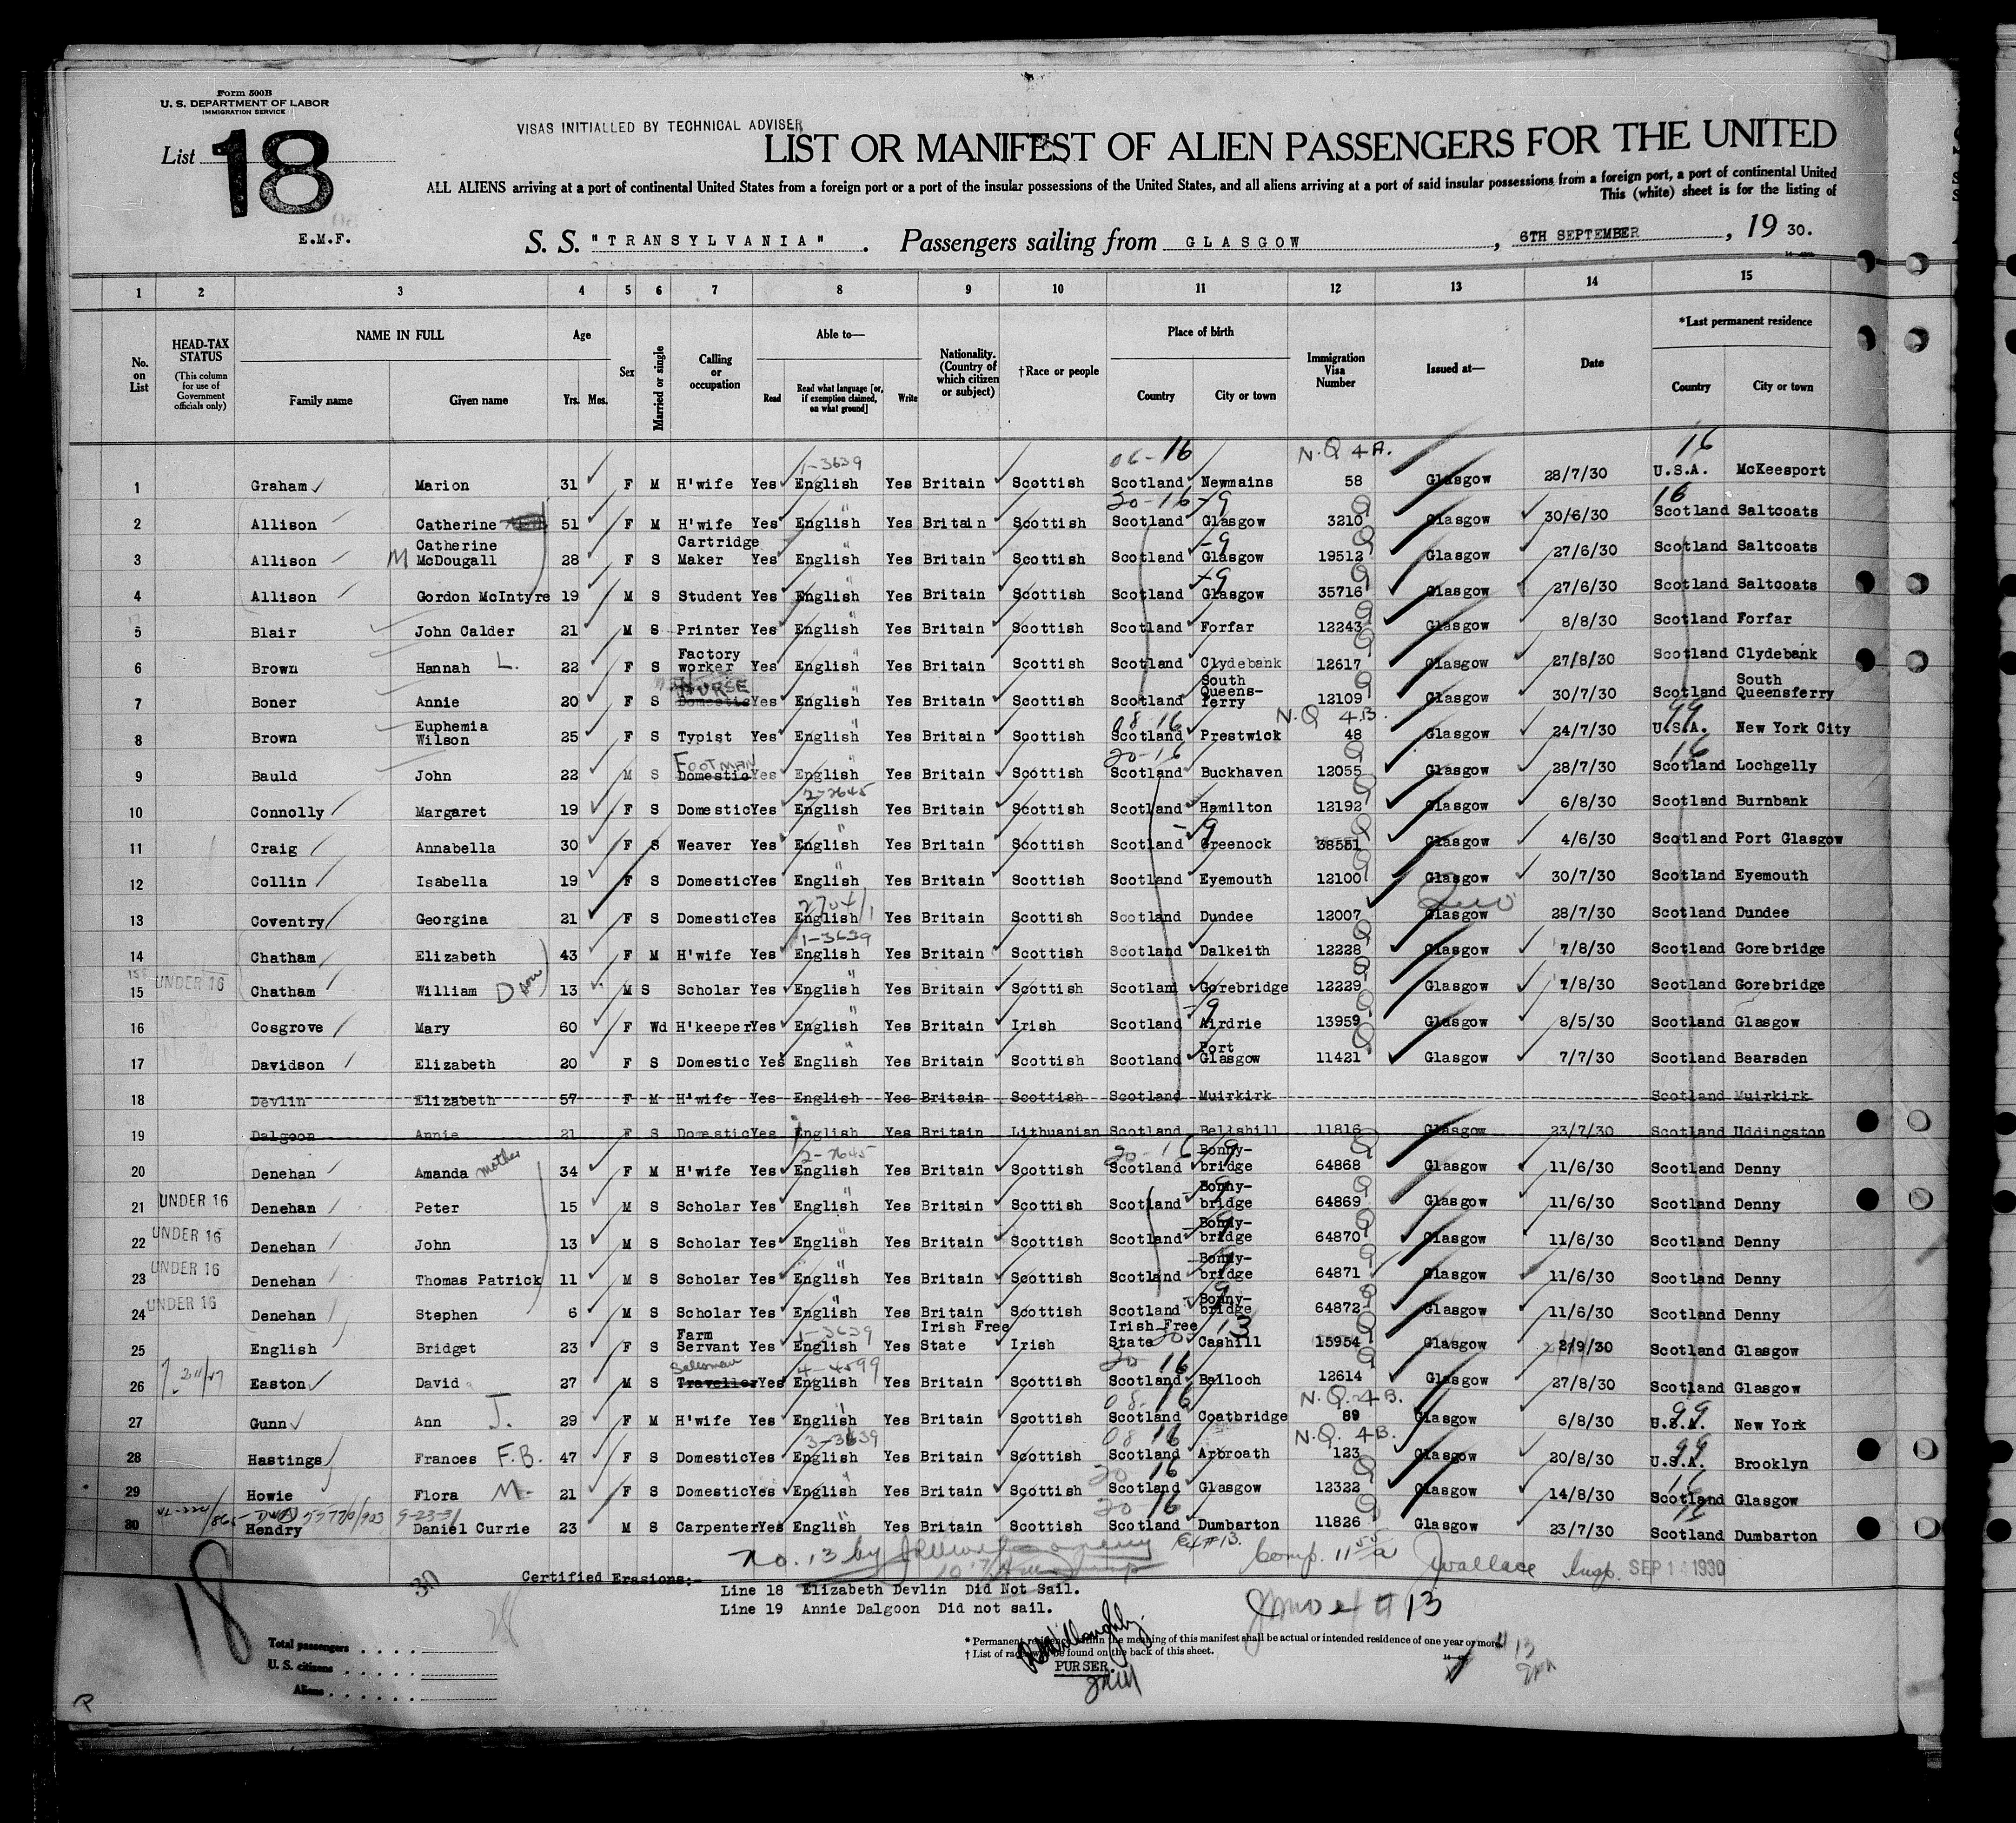 Form 500B
U. S. DEPARTMENT OF LABOR
IMMIGRATION SERVICE
List 18
VISAS INITIALLED BY TECHNICAL ADVISER
LIST OR MANIFEST OF ALIEN PASSENGERS FOR THE UNITED
ALL ALIENS arriving at a port of continental United States from a foreign port or a port of the insular possessions of the United States, and all aliens arriving at a port of said insular possessions from a foreign port, a port of continental United
This (white) sheet is for the listing of
E.M.F.
S. S. "TRANSYLVANIA". Passengers sailing from GLASGOW, 6TH SEPTEMBER, 1930.
1 2 3 4 5 6 7 8 9 10 11 12 13 14 15
No. on List
HEAD-TAX STATUS (This column for use of Government officials only)
NAME IN FULL Family name Given name
Age Yrs. Mos.
Sex
Married or single
Calling or occupation
Able to— Read Read what language [or, if exemption claimed, on what ground] Write
Nationality. (Country of which citizen or subject)
†Race or people
Place of birth Country City or town
Immigration Visa Number
Issued at—
Date
*Last permanent residence Country City or town
06-16 N.Q 4A. 16
1-3639
1 Graham Marion 31 F M H'wife Yes English Yes Britain Scottish Scotland Newmains 58 Glasgow 28/7/30 U.S.A. McKeesport
20-16-9 Q 16
2 Allison Catherine 51 F M H'wife Yes English Yes Britain Scottish Scotland Glasgow 3210 Glasgow 30/6/30 Scotland Saltcoats
3 Allison M Catherine McDougall 28 F S Cartridge Maker Yes English Yes Britain Scottish Scotland Glasgow 19512 Glasgow 27/6/30 Scotland Saltcoats
4 Allison Gordon McIntyre 19 M S Student Yes English Yes Britain Scottish Scotland Glasgow 35716 Glasgow 27/6/30 Scotland Saltcoats
5 Blair John Calder 21 M S Printer Yes English Yes Britain Scottish Scotland Forfar 12243 Glasgow 8/8/30 Scotland Forfar
6 Brown Hannah L. 22 F S Factory worker Yes English Yes Britain Scottish Scotland Clydebank 12617 Glasgow 27/8/30 Scotland Clydebank
NURSE
7 Boner Annie 20 F S Domestic Yes English Yes Britain Scottish Scotland South Queens-ferry 12109 Glasgow 30/7/30 Scotland South Queensferry
08-16 N.Q 4.B. 99
8 Brown Euphemia Wilson 25 F S Typist Yes English Yes Britain Scottish Scotland Prestwick 48 Glasgow 24/7/30 U.S.A. New York City
FOOTMAN 20-16 Q 16
9 Bauld John 22 M S Domestic Yes English Yes Britain Scottish Scotland Buckhaven 12055 Glasgow 28/7/30 Scotland Lochgelly
2-2645
10 Connolly Margaret 19 F S Domestic Yes English Yes Britain Scottish Scotland Hamilton 12192 Glasgow 6/8/30 Scotland Burnbank
11 Craig Annabella 30 F S Weaver Yes English Yes Britain Scottish Scotland Greenock 38551 Glasgow 4/6/30 Scotland Port Glasgow
12 Collin Isabella 19 F S Domestic Yes English Yes Britain Scottish Scotland Eyemouth 12100 Glasgow 30/7/30 Scotland Eyemouth
2704/1
13 Coventry Georgina 21 F S Domestic Yes English Yes Britain Scottish Scotland Dundee 12007 Glasgow 28/7/30 Scotland Dundee
1-3639
14 Chatham Elizabeth 43 F M H'wife Yes English Yes Britain Scottish Scotland Dalkeith 12228 Glasgow 7/8/30 Scotland Gorebridge
UNDER 16
15 Chatham William D son 13 M S Scholar Yes English Yes Britain Scottish Scotlan Gorebridge 12229 Glasgow 7/8/30 Scotland Gorebridge
16 Cosgrove Mary 60 F Wd H'keeper Yes English Yes Britain Irish Scotland Airdrie 13959 Glasgow 8/5/30 Scotland Glasgow
17 Davidson Elizabeth 20 F S Domestic Yes English Yes Britain Scottish Scotland Port Glasgow 11421 Glasgow 7/7/30 Scotland Bearsden
18 Devlin Elizabeth 57 F M H'wife Yes English Yes Britain Scottish Scotland Muirkirk Scotland Muirkirk
19 Dalgoon Annie 21 F S Domestic Yes English Yes Britain Lithuanian Scotland Bellshill 11816 Glasgow 23/7/30 Scotland Uddingston
2-2645 20-16
20 Denehan Amanda mother 34 F M H'wife Yes English Yes Britain Scottish Scotland Bonny-bridge 64868 Glasgow 11/6/30 Scotland Denny
UNDER 16
21 Denehan Peter 15 M S Scholar Yes English Yes Britain Scottish Scotland Bonny-bridge 64869 Glasgow 11/6/30 Scotland Denny
UNDER 16
22 Denehan John 13 M S Scholar Yes English Yes Britain Scottish Scotland Bonny-bridge 64870 Glasgow 11/6/30 Scotland Denny
UNDER 16
23 Denehan Thomas Patrick 11 M S Scholar Yes English Yes Britain Scottish Scotland Bonny-bridge 64871 Glasgow 11/6/30 Scotland Denny
UNDER 16
24 Denehan Stephen 6 M S Scholar Yes English Yes Britain Scottish Scotland Bonny-bridge 64872 Glasgow 11/6/30 Scotland Denny
1-3639
25 English Bridget 23 F S Farm Servant Yes English Yes Irish Free State Irish Irish Free State Cashill 15954 Glasgow 2/9/30 Scotland Glasgow
Salesman 4-4599 20 16
26 Easton David 27 M S Traveller Yes English Yes Britain Scottish Scotland Balloch 12614 Glasgow 27/8/30 Scotland Glasgow
08-16 N.Q. 4B. 99
27 Gunn Ann J. 29 F M H'wife Yes English Yes Britain Scottish Scotland Coatbridge 89 Glasgow 6/8/30 U.S.A. New York
3-3639 08 16 N.Q. 4B. 99
28 Hastings Frances F.B. 47 F S Domestic Yes English Yes Britain Scottish Scotland Arbroath 123 Glasgow 20/8/30 U.S.A. Brooklyn
20 16 Q 16
29 Howie Flora M. 21 F S Domestic Yes English Yes Britain Scottish Scotland Glasgow 12322 Glasgow 14/8/30 Scotland Glasgow
20-16
30 Hendry Daniel Currie 23 M S Carpenter Yes English Yes Britain Scottish Scotland Dumbarton 11826 Glasgow 23/7/30 Scotland Dumbarton
No. 13 by
Wallace Insp. SEP 14 1930
18 30 Certified Erasions:-
Line 18 Elizabeth Devlin Did Not Sail.
Line 19 Annie Dalgoon Did not sail.
# 13
Total passengers
U. S. citizens
Aliens
* Permanent residence within the meaning of this manifest shall be actual or intended residence of one year or more.
† List of races will be found on the back of this sheet.
PURSER.